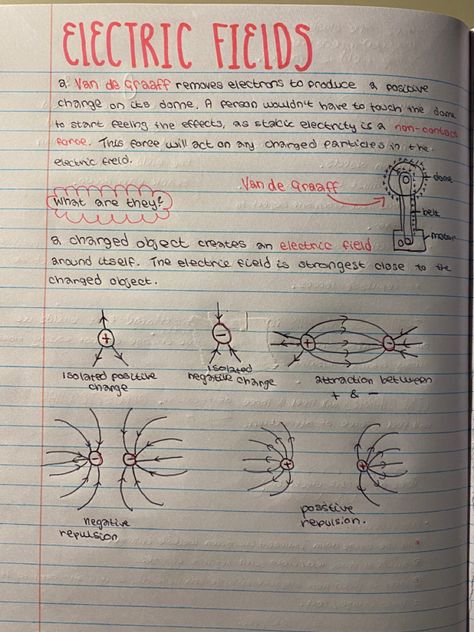 ELECTRIC FIELDS
a Van de Graaff removes electrons to produce a positive
charge on its dome. A person wouldn't have to touch the dome
to start feeling the effects, as static electricity is a non-contact
force. This force will act on any charged particles in the
electric field.
Van de Graaff
dome
belt
motor
What are they?
a charged object creates an electric field
around itself. The electric field is strongest close to the
charged object.
+
isolated positive
charge
-
isolated
negative charge
+ -
attraction between
+ & -
- -
negative
repulsion
+ +
positive
repulsion.